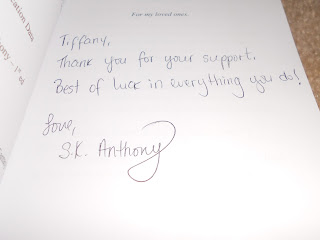 For my loved ones.
Tiffany,
Thank you for your support.
Best of luck in everything you do!
Love,
S.K. Anthony